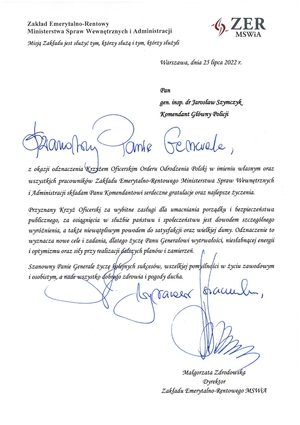 Zakład Emerytalno-Rentowy
Ministerstwa Spraw Wewnętrznych i Administracji
Misją Zakładu jest służyć tym, którzy służą i tym, którzy służyli
ZER
MSWiA
Warszawa, dnia 25 lipca 2022 r.
Pan
gen. insp. dr Jarosław Szymczyk
Komendant Główny Policji
Szanowny Panie Generale,
z okazji odznaczenia Krzyżem Oficerskim Orderu Odrodzenia Polski w imieniu własnym oraz
wszystkich pracowników Zakładu Emerytalno-Rentowego Ministerstwa Spraw Wewnętrznych
i Administracji składam Panu Komendantowi serdeczne gratulacje oraz najlepsze życzenia.
Przyznany Krzyż Oficerski za wybitne zasługi dla umacniania porządku i bezpieczeństwa
publicznego, za osiągnięcia w służbie państwu i społeczeństwu jest dowodem szczególnego
wyróżnienia, a także niewątpliwym powodem do satysfakcji oraz wielkiej dumy. Odznaczenie to
wyznacza nowe cele i zadania, dlatego życzę Panu Generałowi wytrwałości, niesłabnącej energii
i optymizmu oraz siły przy realizacji dalszych planów i zamierzeń.
Szanowny Panie Generale życzę kolejnych sukcesów, wszelkiej pomyślności w życiu zawodowym
i osobistym, a nade wszystko dobrego zdrowia i pogody ducha.
Z wyrazami szacunku,
Małgorzata Zdrodowska
Dyrektor
Zakładu Emerytalno-Rentowego MSWiA